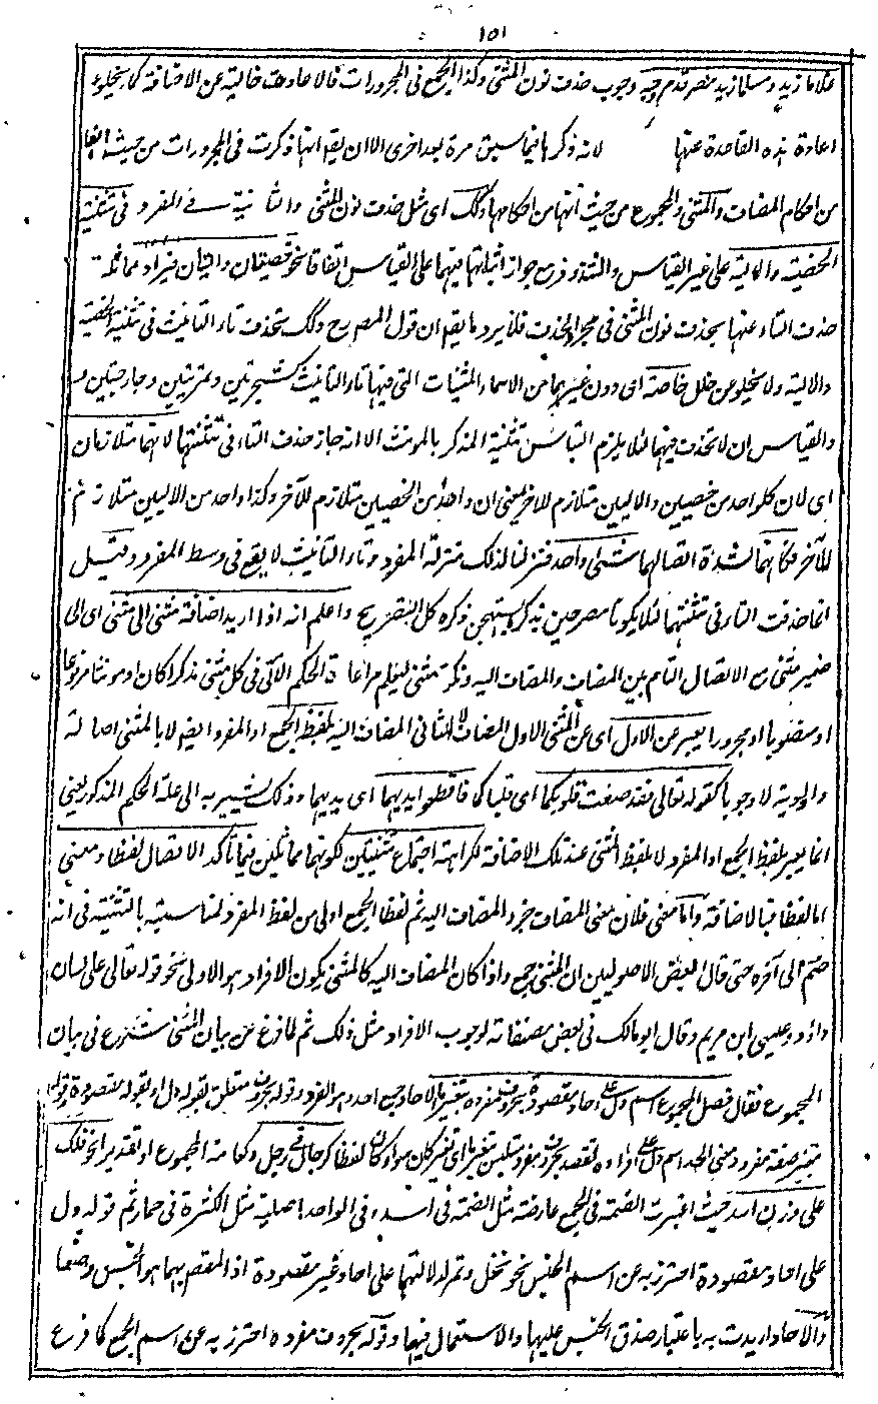 ١٥١
غلاما زيد ومسلما زيد مصر تقدم وجه وجوب حذف نون المثنى وكذا الجمع في المجرورات فالاعادة خالية عن الافادة كما سيجئ
اعادة هذه القاعدة عنها لانه ذكرها فيما سبق مرة بعد اخرى الا ان يقم انها ذكرت في المجرورات من حيث انها
من احكام المضاف والمثنى والمجموع من حيث انها من احكامها وكذلك اى مثل حذف نون المثنى والثانية فى المفرد فى تثنية
الخصية والالية على غير القياس والشذوذ مع جواز اثباتها فيهما على القياس اتفاقا نحو خصيتان واليتان فيراد مماثلة
حذف التاء عنها بحذف نون المثنى فى مجرد الحذف فلا يرد ما يقم ان قول المصرح وكذلك تحذف تاء التانيث فى تثنية الخصية
والالية ولا يخلو عن خلل خاصة اى دون غيرهما من الاسماء المثنيات التى فيها تاء التانيث كشجرتين وتمرتين وجارحتين
والقياس ان لا تحذف فيهما لئلا يلزم التباس تثنية المذكر بالمونث الا انه جاز حذف التاء فى تثنيتها لانهما متلازمان
اى لان كلواحد من خصيين والاليين متلازم للاخر بمعنى ان واحدا من الخصيين متلازم للآخر وكذا واحد من الاليين متلازم
للآخر فكانهما لشدة اتصالهما شئ واحد فنزلنا لذلك منزلة المفرد وتاء التانيث لا يقع فى وسط المفرد وقيل
انما حذفت التاء فى تثنيتهما لئلا يكونا مصرحين بذكر يستهجن ذكره كل التصريح واعلم انه اذا اريد اضافة مثنى الى مثنى اى الى
ضمير مثنى مع الاتصال التام بين المضاف والمضاف اليه وذكر مثنى ليعلم مراعاة الحكم الآتى فى كل مثنى مذكرا كان او مونثا مرفوعا
او منصوبا او مجرورا يعبر عن الاول اى عن المثنى الاول المضاف لا الثانى المضاف اليه بلفظ الجمع او المفرد ايضم لا بالمثنى اصالة
والاولوية لا وجوبا كقوله تعالى فقد صغت قلوبكما اى قلباكما فاقطعوا ايديهما اى يديهما وذلك يشير به الى علة الحكم المذكور يعنى
انما يعبر بلفظ الجمع او المفرد لا بلفظ المثنى عند تلك الاضافة لكراهة اجتماع تثنيتين لكونهما مماثلين فيما تاكد الاتصال لفظا ومعنى
اما لفظا فبالاضافة واما معنى فلان معنى المضاف جزء المضاف اليه ثم لفظ الجمع اولى من لفظ المفرد لمناسبته بالتثنية فى انه
ضم الى آخره حتى قال بعض الاصوليين ان المثنى جمع واذا كان المضاف اليه كالمثنى يكون الافراد هو الاولى نحو قوله تعالى على لسان
داؤد وعيسى ابن مريم وقال ابو مالك فى بعض مصنفاته لوجوب الافراد مثل ذلك ثم لما فرغ عن بيان المثنى شرع فى بيان
المجموع فقال فصل المجموع اسم دل على احاد مقصودة بحروف مفرده بتغير ما الاحاد جمع احد وهو الفرد وقوله بحروف متعلق بقوله دل او بقوله مقصودة وقوله
بتغير صفة مفرد ومعنى الحد اسم دل على افراده تقصد بحروف مفرده متلبس بتغير ما اى تغير كان سواء كان لفظا كرجال فى رجل وكما مة المجموع او تقديرا نحو فلك
على وزن اسد حيث اعتبرت الضمة فى الجمع عارضة مثل الضمة فى اسد وفى الواحد اصلية مثل الكثرة فى حمار ثم قوله دل
على احاد مقصودة احترز به عن اسم الجنس نحو نخل وتمر لدلالتها على احاد غير مقصودة اذ المقصم بهما هو الجنس وضعا
والآحاد اريدت به باعتبار صدق الجنس عليها والاستعمال فيها وقوله بحروف مفرده احترز به عن اسم الجمع كما فرع